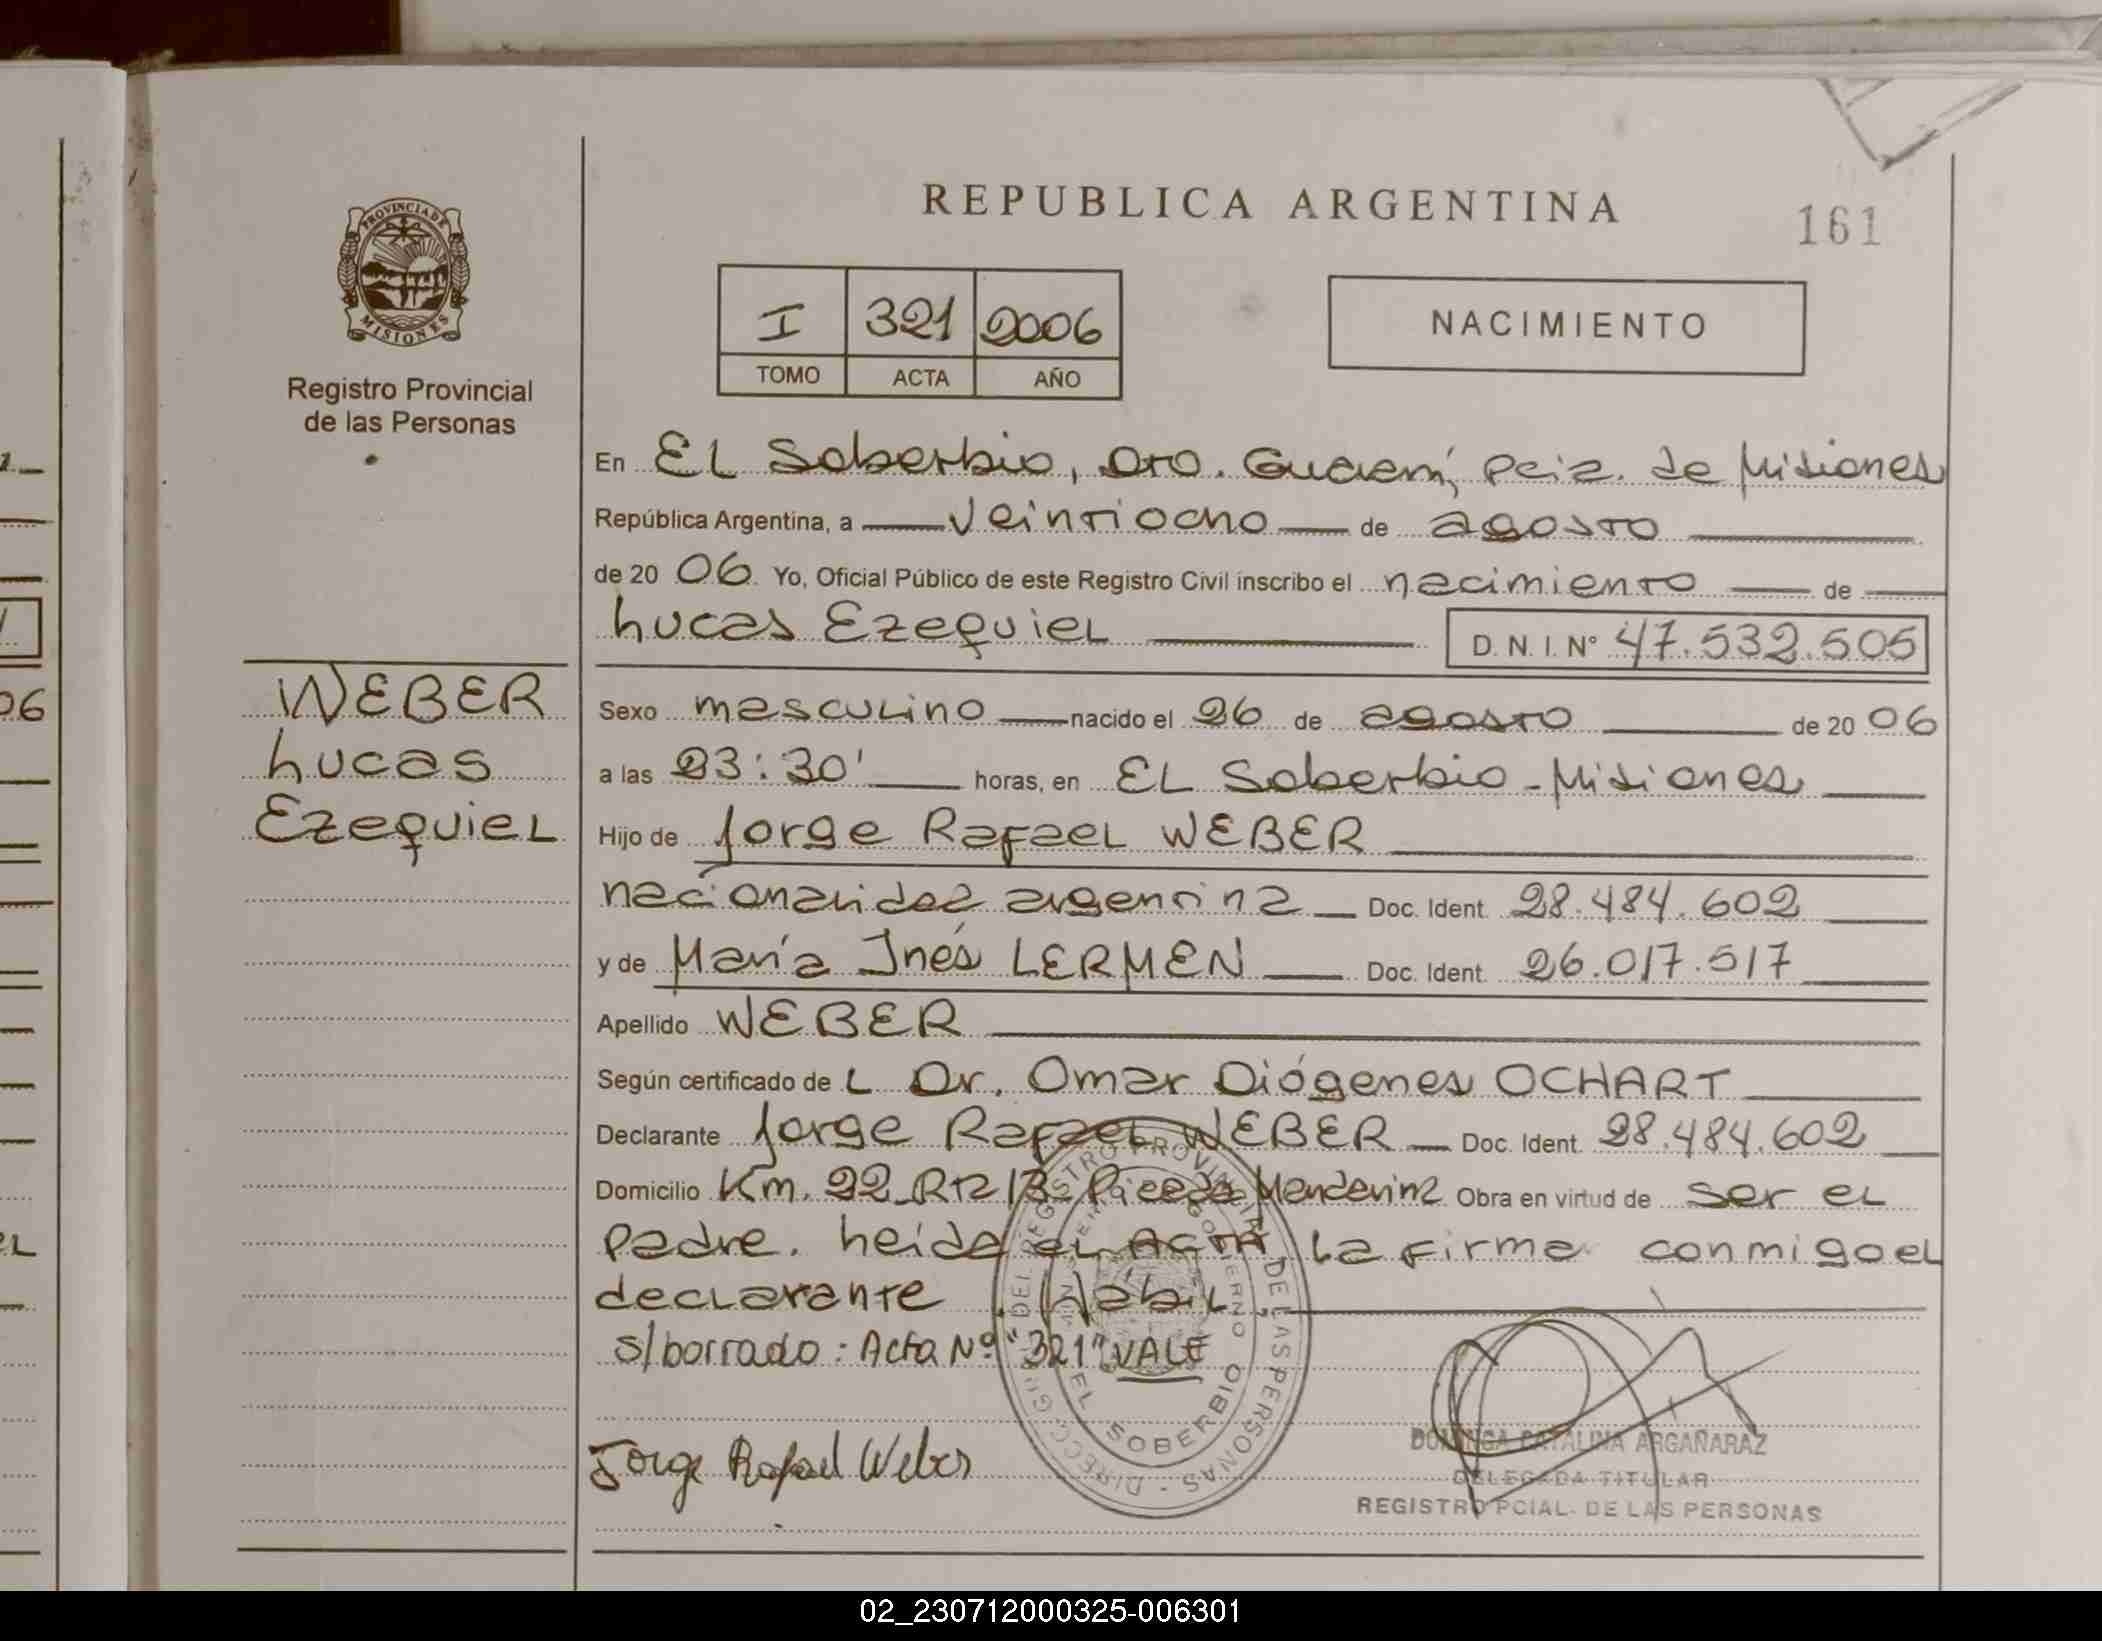 REPUBLICA ARGENTINA
161
PROVINCIA DE
MISIONES
Registro Provincial
de las Personas
I 321 2006
TOMO ACTA AÑO
NACIMIENTO
En El Soberbio, Dto. Guaraní, Pcia. de Misiones
República Argentina, a veintiocho de agosto
de 20 06 Yo, Oficial Público de este Registro Civil inscribo el nacimiento de
Lucas Ezequiel D. N. I. N° 47.532.505
WEBER
Lucas
Ezequiel
Sexo masculino nacido el 26 de agosto de 20 06
a las 23:30' horas, en El Soberbio - Misiones
Hijo de Jorge Rafael WEBER
nacionalidad argentina Doc. Ident. 28.484.602
y de María Inés LERMEN Doc. Ident. 26.017.517
Apellido WEBER
Según certificado de L Dr. Omar Diógenes OCHART
Declarante Jorge Rafael WEBER Doc. Ident. 28.484.602
Domicilio Km. 22 Picada Mandarina Obra en virtud de ser el
padre. Leida el ACTA, la firma conmigo el
declarante. Hábil
s/borrado: Acta Nº "321" VALE
Jorge Rafael Weber
REGISTRO PROVINCIAL DE LAS PERSONAS
GOBIERNO
EL SOBERBIO
DOMINGA CATALINA ARGAÑARAZ
DELEGADA TITULAR
REGISTRO PCIAL. DE LAS PERSONAS
06
02_230712000325-006301